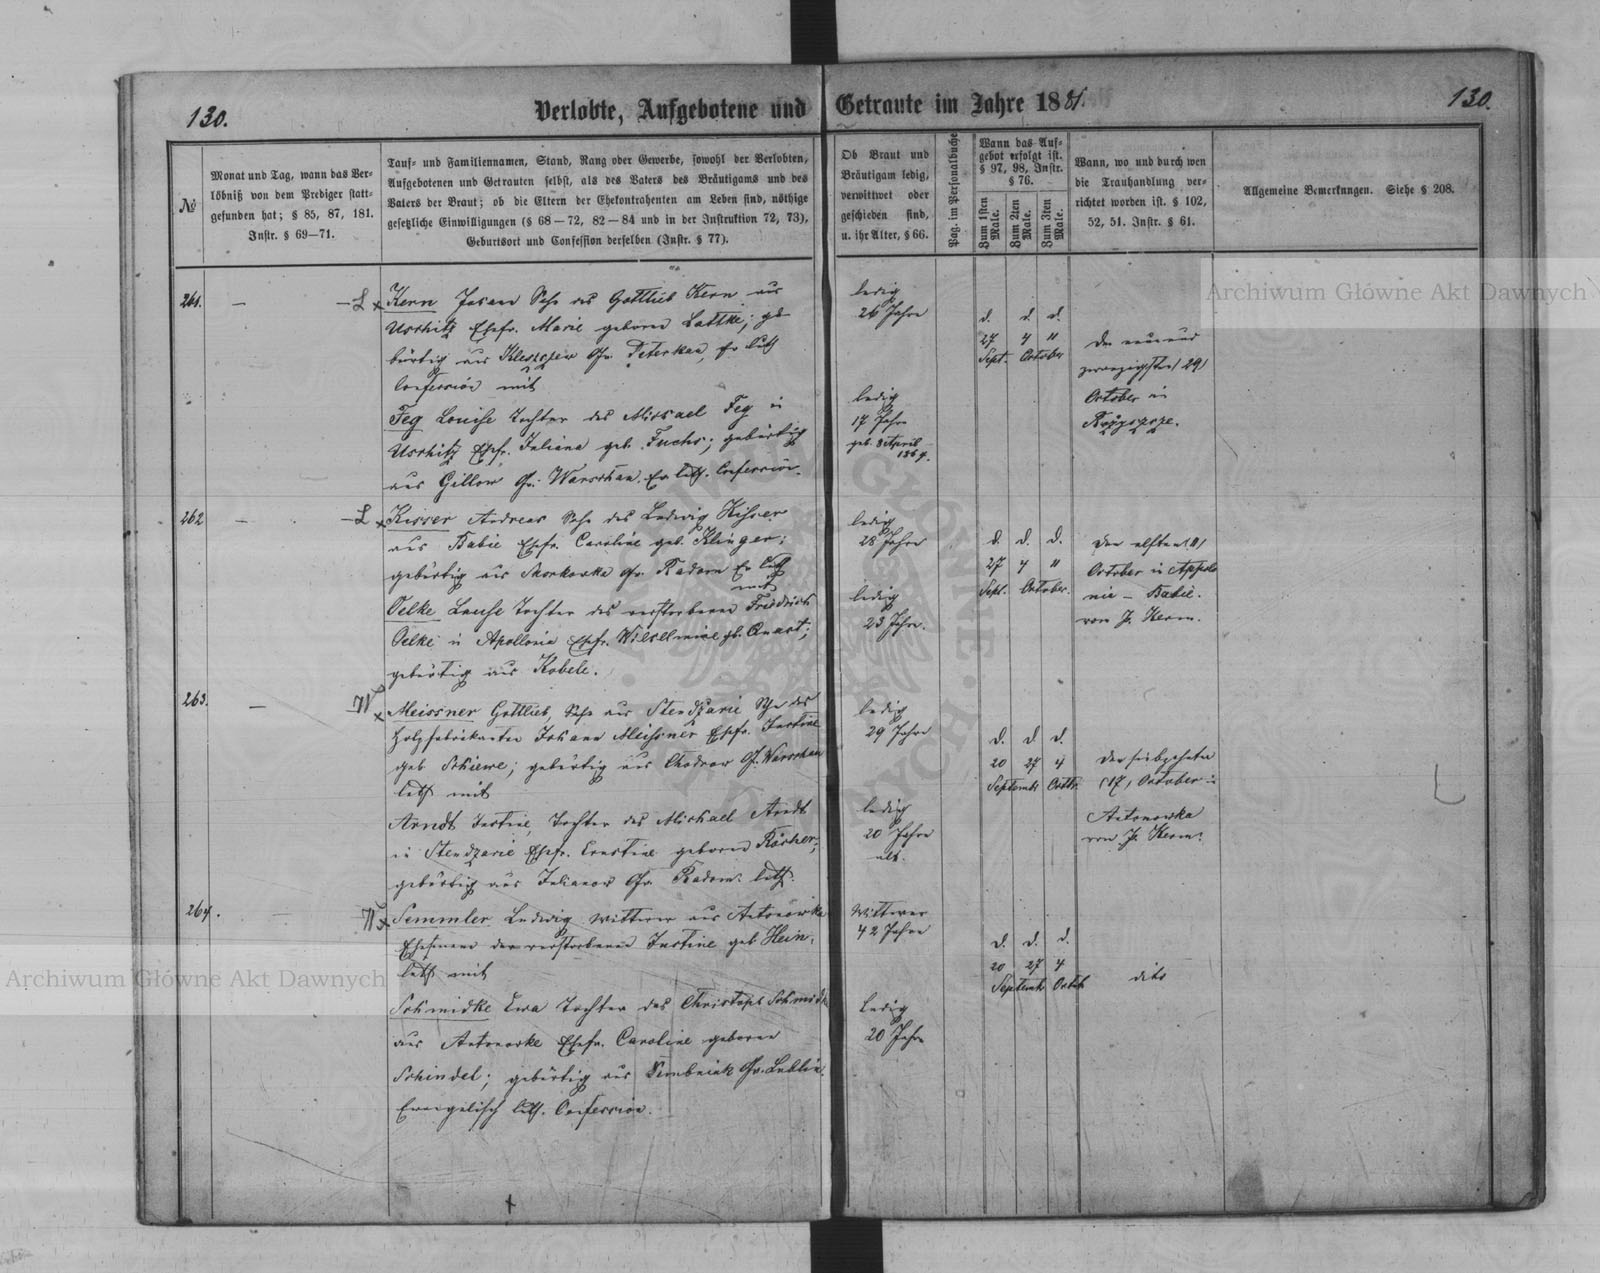 130.
Verlobte, Aufgebotene und Getraute im Jahre 1881.
130.
№
Monat und Tag, wann das Ver-
löbniß von dem Prediger statt-
gefunden hat; § 85, 87, 181.
Instr. § 69—71.
Tauf- und Familiennamen, Stand, Rang oder Gewerbe, sowohl der Verlobten,
Aufgebotenen und Getrauten selbst, als des Vaters des Bräutigams und des
Vaters der Braut; ob die Eltern der Ehekontrahenten am Leben sind, nöthige
gesetzliche Einwilligungen (§ 68—72, 82—84 und in der Instruktion 72, 73),
Geburtsort und Confession derselben (Instr. § 77).
Ob Braut und
Bräutigam ledig,
verwittwet oder
geschieden sind,
u. ihr Alter, § 66.
Pag. im Personalbuche
Wann das Auf-
gebot erfolgt ist.
§ 97, 98, Instr.
§ 76.
Zum 1sten
Male.
Zum 2ten
Male.
Zum 3ten
Male.
Wann, wo und durch wen
die Trauhandlung ver-
richtet worden ist. § 102,
52, 51. Instr. § 61.
Allgemeine Bemerknngen. Siehe § 208.
261.
—
—L ×
Kern Johann Sohn des Gottlieb Kern aus
Uschitz Ehefr. Marie geborene Lattke; ge-
bürtig aus Gr. Peterkau, ev luth
Confession mit
Feg Louise Tochter des Michael Feg in
Uschitz Ehefr. Juliana geb. Fuchs; gebürtig
aus Gillow Gv. Warschau. Ev luth. Confession.
ledig
26 Jahre
ledig
17 Jahre
geb. 8 April
1864.
d. d. d.
27 4 11
Sept. October
den neun und
zwanzigsten (29)
October in
Rożyszcze.
262
—
—L ×
Kisser Andreas Sohn des Ludwig Kisser
aus Babie Ehefr. Caroline geb. Klinger;
gebürtig aus Morkowka Gv. Radom Ev luth
mit
Oelke Louise Tochter des verstorbenen Friedrich
Oelke in Apollonie Ehefr. Wilhelmine gb. Quast;
gebürtig aus Kobele.
ledig
28 Jahre
ledig
23 Jahre.
d. d. d.
27 4 11
Sept. October.
den elften (11)
October in Appolo
nie — Babie.
von J. Kerm.
263.
—
W ×
Meissner Gottlieb, Sohn aus Stendzarie Sohn des
Holzfabrikanten Johann Meissner Ehefr. Justine
geb Schiewe; gebürtig aus Chodrow Gv. Warschau
luth mit
Arndt Justine, Tochter des Michael Arndt
in Stendzarie Ehefr. Ernstine geborene Röscher;
gebürtig aus Julianow Gv. Radom. luth.
ledig
29 Jahre
ledig
20 Jahre
alt.
d. d. d.
20 27 4
Septembr Octbr.
den siebzehnten
(17) October in
Antonowka
von J. Kerm.
264.
W ×
Semmler Ludwig Wittwer aus Antonowka
Ehemann der verstorbenen Justine geb Hein.
luth mit
Schmidke Ewa Tochter des Christoph Schmidke
aus Antonowke Ehefr. Caroline geborene
Schindel; gebürtig aus Gv. Lublin.
Evangelisch luth. Confession.
Wittwer
42 Jahre
Ledig
20 Jahre
d. d. d.
20 27 4
Septembr Octob
dito
Archiwum Główne Akt Dawnych
Archiwum Główne Akt Dawnych